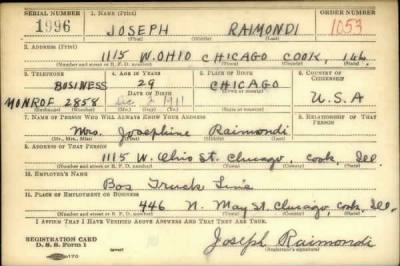 SERIAL NUMBER 1. NAME (Print) ORDER NUMBER
1996 JOSEPH RAIMONDI 1053
(First) (Middle) (Last)
2. ADDRESS (Print)
1115 W. OHIO CHICAGO COOK, Ill.
(Number and street or R. F. D. number) (Town) (County) (State)
3. TELEPHONE 4. AGE IN YEARS 5. PLACE OF BIRTH 6. COUNTRY OF CITIZENSHIP
BUSINESS 29 CHICAGO
DATE OF BIRTH (Town or county)
MONROE 2858 Dec 2 1911 U.S.A
(Exchange) (Number) (Mo.) (Day) (Yr.) (State or country)
7. NAME OF PERSON WHO WILL ALWAYS KNOW YOUR ADDRESS 8. RELATIONSHIP OF THAT PERSON
Mrs. Josephine Raimondi
(Mr., Mrs., Miss) (First) (Middle) (Last)
9. ADDRESS OF THAT PERSON
1115 W. Ohio St. Chicago, Cook, Ill.
(Number and street or R. F. D. number) (Town) (County) (State)
10. EMPLOYER'S NAME
Bos Truck Line
11. PLACE OF EMPLOYMENT OR BUSINESS
446 N. May St. Chicago, Cook, Ill.
(Number and street or R. F. D. number) (Town) (County) (State)
I AFFIRM THAT I HAVE VERIFIED ABOVE ANSWERS AND THAT THEY ARE TRUE.
REGISTRATION CARD
D. S. S. Form 1 Joseph Raimondi
(Registrant's signature)